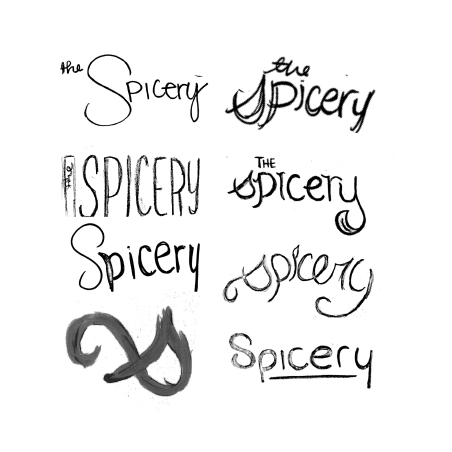 the
Spicery
the
Spicery
the
SPICERY
THE
Spicery
Spicery
Spicery
S
Spicery